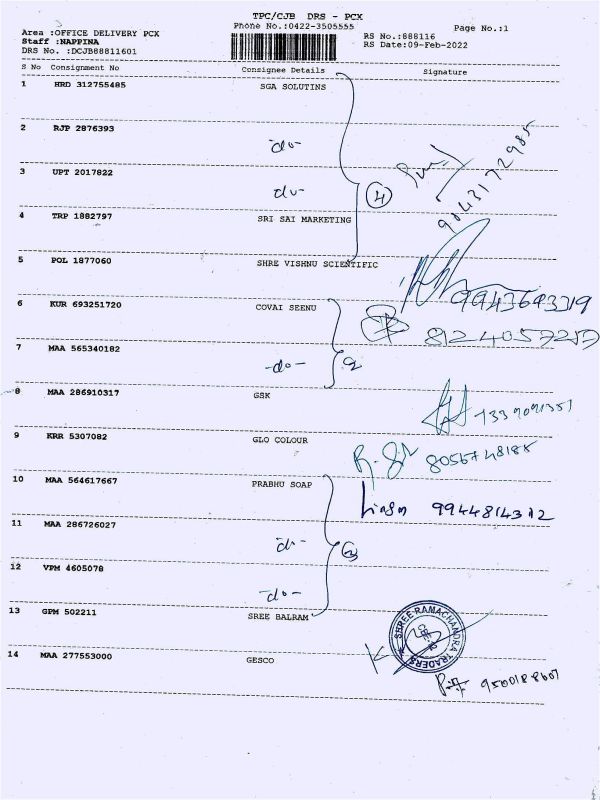 TPC/CJB DRS - PCX
Phone No.:0422-3505555
Page No.:1
Area :OFFICE DELIVERY PCX
Staff :NAPPINA
DRS No. :DCJB88811601
RS No.:888116
RS Date:09-Feb-2022
S No Consignment No Consignee Details Signature
1 HRD 312755485 SGA SOLUTINS
2 RJP 2876393 -do-
3 UPT 2017822 -do-
4
9043172985
4 TRP 1882797 SRI SAI MARKETING
5 POL 1877060 SHRE VISHNU SCIENTIFIC
9943693319
6 KUR 693251720 COVAI SEENU
8124057257
7 MAA 565340182 -do- 2
8 MAA 286910317 GSK
9 KRR 5307082 GLO COLOUR 8056748185
10 MAA 564617667 PRABHU SOAP 9944814312
11 MAA 286726027 -do- 3
12 VPM 4605078 -do-
13 GPM 502211 SREE BALRAM
SHREE RAMACHANDRA TRADERS
14 MAA 277553000 GESCO
9500188607